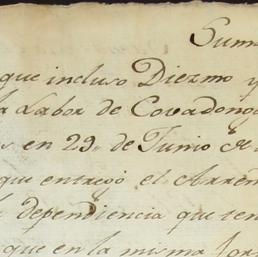 Sum
que incluso Diezmo y
la Labor de Covadonga
en 29. de Junio de
que entregó el Arren
dependiencia que ten
que en la misma for